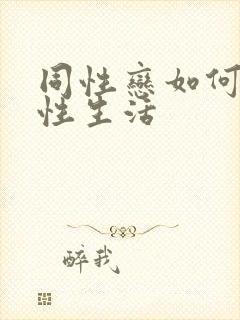 同性戀如何
性生活
醉我